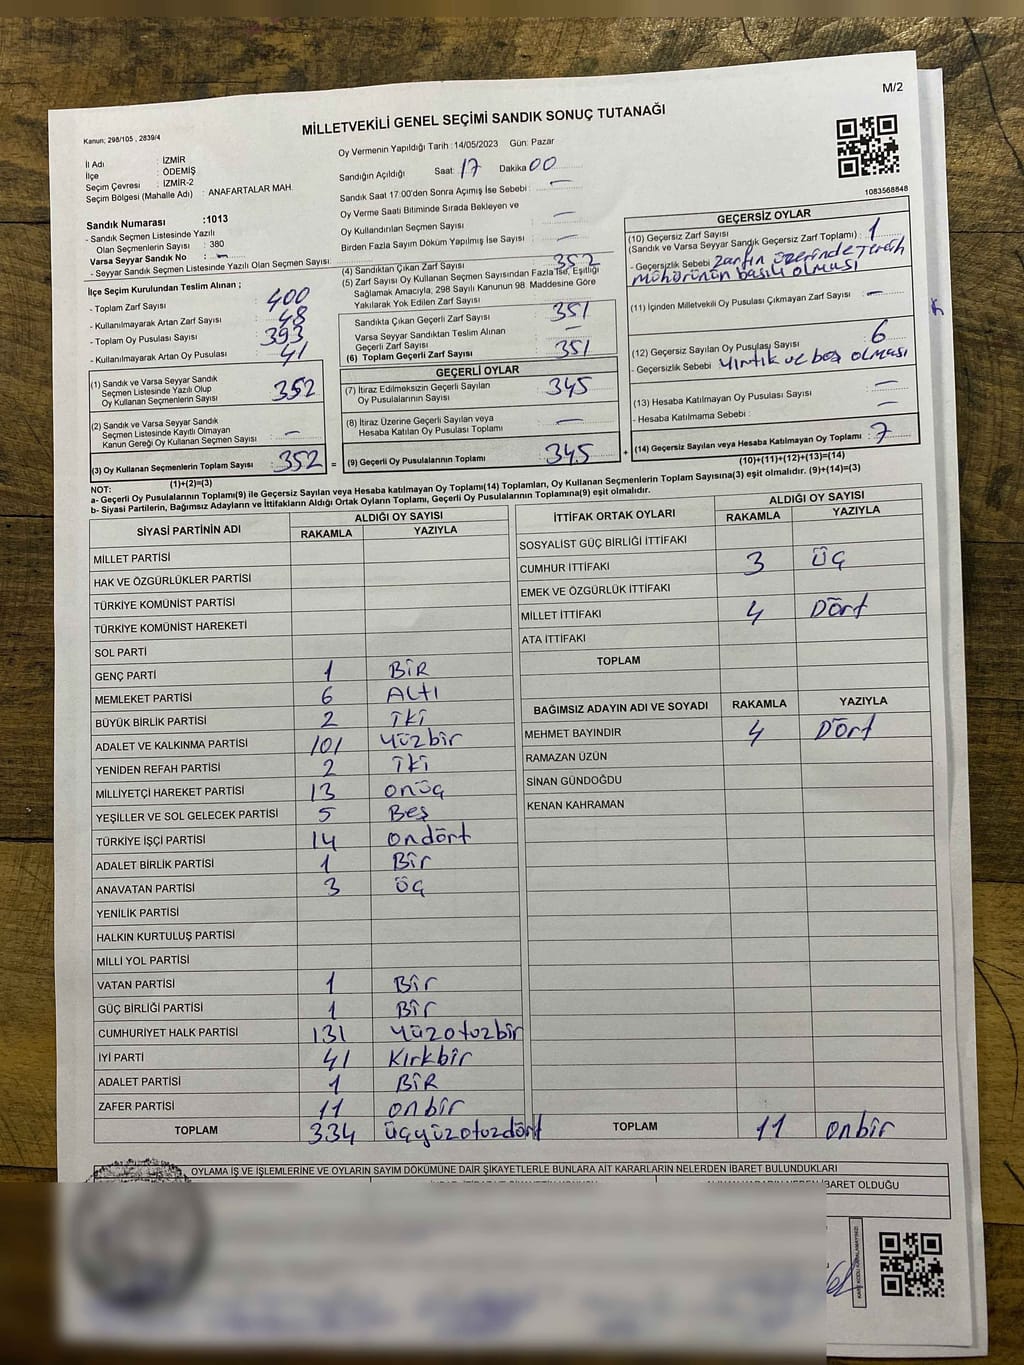 M/2
MİLLETVEKİLİ GENEL SEÇİMİ SANDIK SONUÇ TUTANAĞI
Kanun; 298/105 , 2839/4
İl Adı : İZMİR
İlçe : ÖDEMİŞ
Seçim Çevresi : İZMİR-2
Seçim Bölgesi (Mahalle Adı) : ANAFARTALAR MAH.
Oy Vermenin Yapıldığı Tarih : 14/05/2023 Gün: Pazar
Sandığın Açıldığı Saat: 17 Dakika 00
Sandık Saat 17:00'den Sonra Açımış İse Sebebi : —
Oy Verme Saati Bitiminde Sırada Bekleyen ve
Oy Kullandırılan Seçmen Sayısı —
Birden Fazla Sayım Döküm Yapılmış İse Sayısı —
1083568848
Sandık Numarası :1013
- Sandık Seçmen Listesinde Yazılı
Olan Seçmenlerin Sayısı : 380
Varsa Seyyar Sandık No : —
- Seyyar Sandık Seçmen Listesinde Yazılı Olan Seçmen Sayısı:
İlçe Seçim Kurulundan Teslim Alınan ;
- Toplam Zarf Sayısı : 400
- Kullanılmayarak Artan Zarf Sayısı : 48
- Toplam Oy Pusulası Sayısı : 393
- Kullanılmayarak Artan Oy Pusulası : 41
(1) Sandık ve Varsa Seyyar Sandık
Seçmen Listesinde Yazılı Olup
Oy Kullanan Seçmenlerin Sayısı : 352
(2) Sandık ve Varsa Seyyar Sandık
Seçmen Listesinde Kayıtlı Olmayan
Kanun Gereği Oy Kullanan Seçmen Sayısı : —
(3) Oy Kullanan Seçmenlerin Toplam Sayısı : 352
(1)+(2)=(3)
(4) Sandıktan Çıkan Zarf Sayısı : 352
(5) Zarf Sayısı Oy Kullanan Seçmen Sayısından Fazla İse, Eşitliği
Sağlamak Amacıyla; 298 Sayılı Kanunun 98. Maddesine Göre
Yakılarak Yok Edilen Zarf Sayısı
Sandıkta Çıkan Geçerli Zarf Sayısı : 351
Varsa Seyyar Sandıktan Teslim Alınan
Geçerli Zarf Sayısı : —
(6) Toplam Geçerli Zarf Sayısı : 351
GEÇERLİ OYLAR
(7) İtiraz Edilmeksizin Geçerli Sayılan
Oy Pusulalarının Sayısı : 345
(8) İtiraz Üzerine Geçerli Sayılan veya
Hesaba Katılan Oy Pusulası Toplamı : —
(9) Geçerli Oy Pusulalarının Toplamı : 345
GEÇERSİZ OYLAR
(10) Geçersiz Zarf Sayısı : 1
(Sandık ve Varsa Seyyar Sandık Geçersiz Zarf Toplamı) :
- Geçersizlik Sebebi : Zarfın üzerinde Tercih
mühürünün basılı olması
(11) İçinden Milletvekili Oy Pusulası Çıkmayan Zarf Sayısı : —
(12) Geçersiz Sayılan Oy Pusulası Sayısı : 6
- Geçersizlik Sebebi : yırtık ve boş olması
(13) Hesaba Katılmayan Oy Pusulası Sayısı : —
- Hesaba Katılmama Sebebi : —
(14) Geçersiz Sayılan veya Hesaba Katılmayan Oy Toplamı : 7
(10)+(11)+(12)+(13)=(14)
NOT:
a- Geçerli Oy Pusulalarının Toplamı(9) ile Geçersiz Sayılan veya Hesaba katılmayan Oy Toplamı(14) Toplamları, Oy Kullanan Seçmenlerin Toplam Sayısına(3) eşit olmalıdır. (9)+(14)=(3)
b- Siyasi Partilerin, Bağımsız Adayların ve İttifakların Aldığı Ortak Oyların Toplamı, Geçerli Oy Pusulalarının Toplamına(9) eşit olmalıdır.
SİYASİ PARTİNİN ADI ALDIĞI OY SAYISI
RAKAMLA YAZIYLA
MİLLET PARTİSİ
HAK VE ÖZGÜRLÜKLER PARTİSİ
TÜRKİYE KOMÜNİST PARTİSİ
TÜRKİYE KOMÜNİST HAREKETİ
SOL PARTİ
GENÇ PARTİ 1 BİR
MEMLEKET PARTİSİ 6 ALTI
BÜYÜK BİRLİK PARTİSİ 2 İki
ADALET VE KALKINMA PARTİSİ 101 Yüzbir
YENİDEN REFAH PARTİSİ 2 İki
MİLLİYETÇİ HAREKET PARTİSİ 13 onüç
YEŞİLLER VE SOL GELECEK PARTİSİ 5 Beş
TÜRKİYE İŞÇİ PARTİSİ 14 ondört
ADALET BİRLİK PARTİSİ 1 Bir
ANAVATAN PARTİSİ 3 üç
YENİLİK PARTİSİ
HALKIN KURTULUŞ PARTİSİ
MİLLİ YOL PARTİSİ
VATAN PARTİSİ 1 Bir
GÜÇ BİRLİĞİ PARTİSİ 1 Bir
CUMHURİYET HALK PARTİSİ 131 Yüzotuzbir
İYİ PARTİ 41 Kırkbir
ADALET PARTİSİ 1 BİR
ZAFER PARTİSİ 11 onbir
TOPLAM 334 üçyüzotuzdört
İTTİFAK ORTAK OYLARI ALDIĞI OY SAYISI
RAKAMLA YAZIYLA
SOSYALİST GÜÇ BİRLİĞİ İTTİFAKI
CUMHUR İTTİFAKI 3 üç
EMEK VE ÖZGÜRLÜK İTTİFAKI
MİLLET İTTİFAKI 4 Dört
ATA İTTİFAKI
TOPLAM
BAĞIMSIZ ADAYIN ADI VE SOYADI RAKAMLA YAZIYLA
MEHMET BAYINDIR 4 Dört
RAMAZAN ÜZÜN
SİNAN GÜNDOĞDU
KENAN KAHRAMAN
TOPLAM 11 onbir
OYLAMA İŞ VE İŞLEMLERİNE VE OYLARIN SAYIM DÖKÜMÜNE DAİR ŞİKAYETLERLE BUNLARA AİT KARARLARIN NELERDEN İBARET BULUNDUKLARI